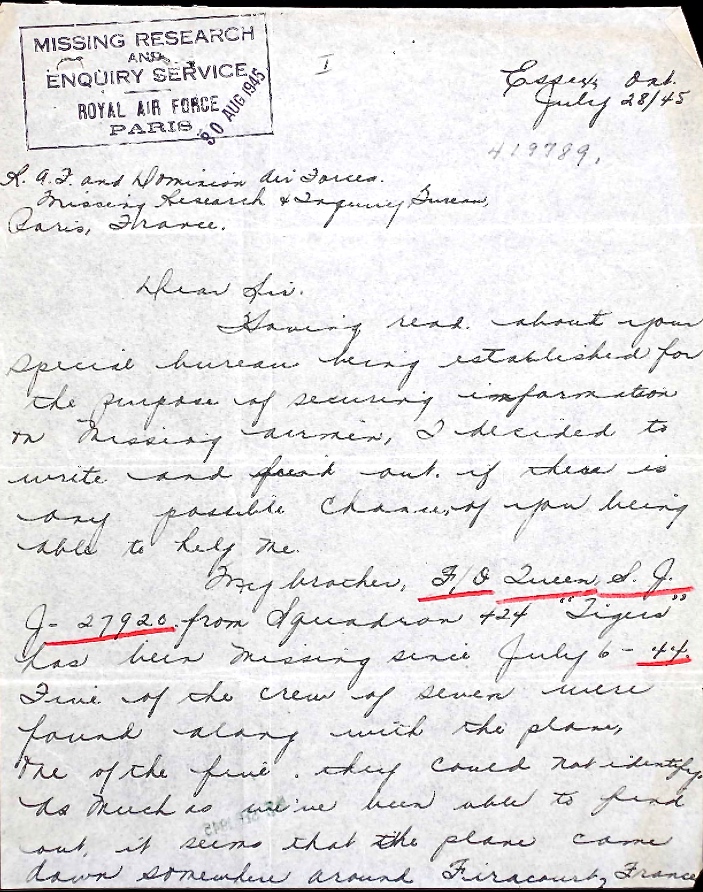 MISSING RESEARCH
AND
ENQUIRY SERVICE
ROYAL AIR FORCE
PARIS
30 AUG 1945
I
Essex Ont.
July 28/45
419789.
R.A.F. and Dominion Air Forces.
Missing Research & Inquiry Bureau,
Paris, France.
Dear Sir.
Having read about your
special bureau being established for
the purpose of securing information
on missing airmen, I decided to
write and find out if there is
any possible chance of you being
able to help me.
My brother, F/O Queen, S. J.
J-27920 from Squadron 424 "Tigers"
has been missing since July 6-44
Five of the crew of seven were
found along with the plane,
one of the five they could not identify.
As much as we've been able to find
out, it seems that the plane came
down somewhere around Firacourt, France